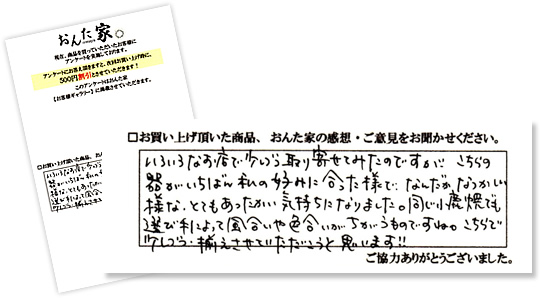 おんた家
現在、商品を買っていただいたお客様に
アンケートを実施しております。
アンケートにお答え頂きますと、次回お買い上げ時に、
500円割引とさせていただきます！
このアンケートはおんた家
【お客様ギャラリー】に掲載させていただきます。
□お買い上げ頂いた商品、おん
□お買い上げ頂いた商品、おんた家の感想・ご意見をお聞かせください。
いろいろなお店で少しづつ取り寄せてみたのですが、こちらの
器がいちばん私の好みに合った様で、なんだかなつかしい
様な、とてもあったかい気持ちになりました。同じ小鹿田焼でも
選び手によって風合いや色合いがちがうものですね。こちらで
少しづつ揃えさせていただこうと思います!!
ご協力ありがとうございました。